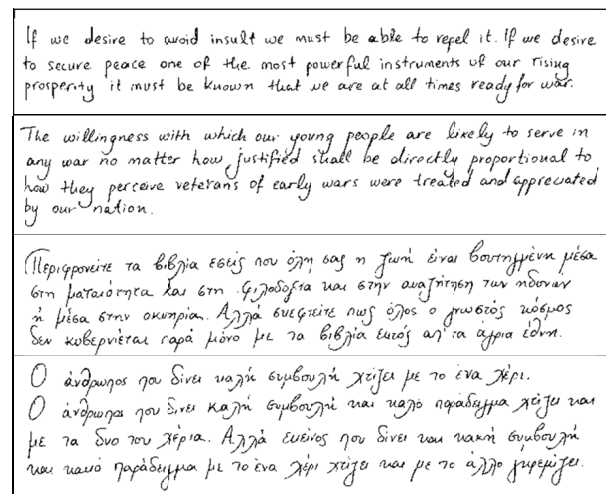 If we desire to avoid insult we must be able to repel it. If we desire
to secure peace one of the most powerful instruments of our rising
prosperity it must be known that we are at all times ready for war.
The willingness with which our young people are likely to serve in
any war no matter how justified shall be directly proportional to
how they perceive veterans of early wars were treated and appreciated
by our nation.
Περιφρονείτε τα βιβλία εσείς που όλη σας η ζωή είναι βουτηγμένη μέσα
στη ματαιότητα και στη φιλοδοξία και στην αναζήτηση των ηδονών
ή μέσα στην οκνηρία. Αλλά σκεφτείτε πως όλος ο γνωστός κόσμος
δεν κυβερνιέται παρά μόνο με τα βιβλία εκτός απ'τα άγρια έθνη.
Ο άνθρωπος που δίνει καλή συμβουλή χτίζει με το ένα χέρι.
Ο άνθρωπος που δίνει καλή συμβουλή και καλό παράδειγμα χτίζει και
με τα δυο του χέρια. Αλλά εκείνος που δίνει και κακή συμβουλή
και κακό παράδειγμα με το ένα χέρι χτίζει και με το άλλο γκρεμίζει.